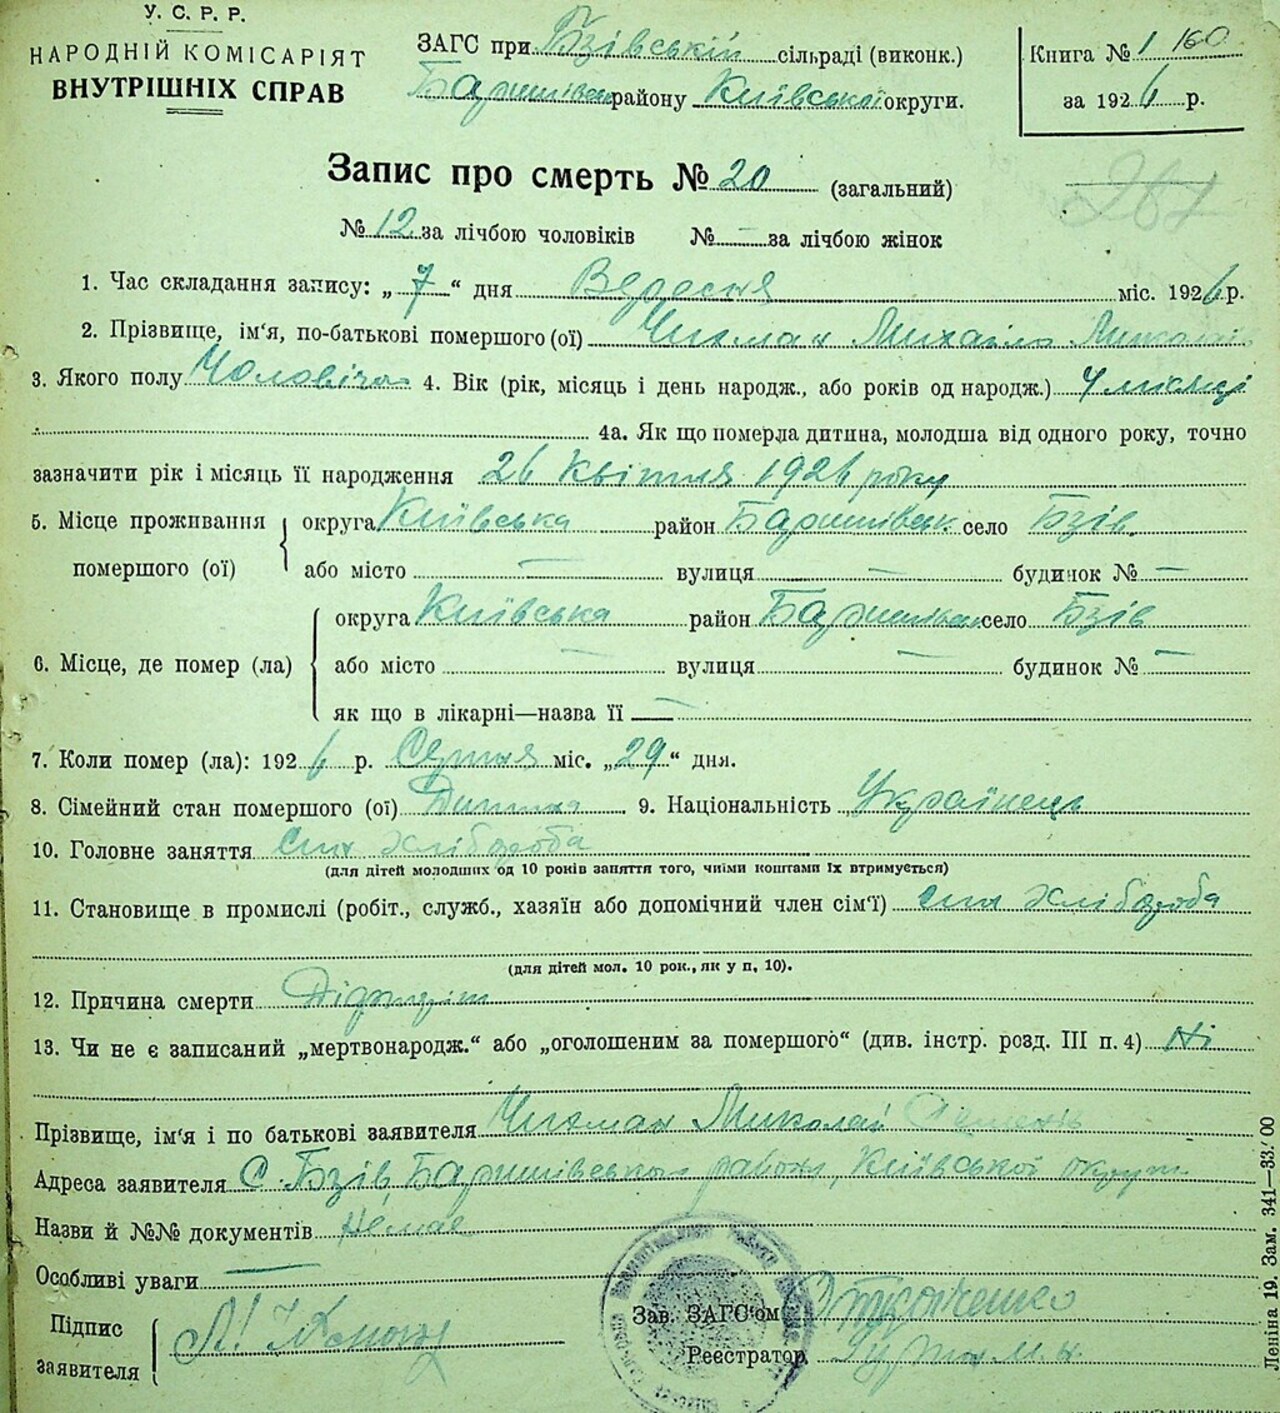 У. С. Р. Р.
НАРОДНІЙ КОМІСАРІЯТ
ВНУТРІШНІХ СПРАВ
ЗАГС при Бзівській сільраді (виконк.)
Баришівськ району Київської округи.
Книга № 1 160
за 1926 р.
Запис про смерть № 20 (загальний)
№ 12 за лічбою чоловіків № — за лічбою жінок
1. Час складання запису: „ 7 “ дня Вересня міс. 1926 р.
2. Прізвище, ім'я, по-батькові помершого (ої) Чихман Михайло Миколаїв
3. Якого полу Чоловіча 4. Вік (рік, місяць і день народж., або років од народж.) 4 місяці
4а. Як що померла дитина, молодша від одного року, точно
зазначити рік і місяць її народження 26 Квітня 1926 року
5. Місце проживання помершого (ої) округа Київська район Баришівськ село Бзів
або місто — вулиця — будинок № —
6. Місце, де помер (ла) округа Київська район Баришівськ село Бзів
або місто — вулиця — будинок № —
як що в лікарні—назва її —
7. Коли помер (ла): 1926 р. Серпня міс. „29“ дня.
8. Сімейний стан помершого (ої) Дитина 9. Національність Українець
10. Головне заняття син хлібороба
(для дітей молодших од 10 років заняття того, чиїми коштами їх втримується)
11. Становище в промислі (робіт., служб., хазяїн або допомічний член сім'ї) син хлібороба
(для дітей мол. 10 рок., як у п, 10).
12. Причина смерти Діфтеріт
13. Чи не є записаний „мертвонародж.“ або „оголошеним за помершого“ (див. інстр. розд. III п. 4) Ні
Прізвище, ім'я і по батькові заявителя Чихман Миколай Семенів
Адреса заявителя С. Бзів, Баришівського району, Київської округи
Назви й №№ документів Немає
Особливі уваги —
Підпис заявителя
Зав. ЗАГС'ом Ткаченко
Реєстратор
Леніна 19. Зам. 341—33.' 00